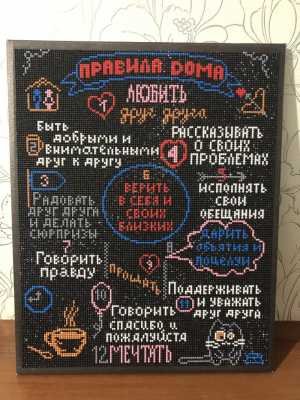 ПРАВИЛА ДОМА
1
ЛЮБИТЬ
друг друга
2
Быть
добрыми и
внимательными
друг к другу
4
РАССКАЗЫВАТЬ
О СВОИХ
ПРОБЛЕМАХ
3
РАДОВАТЬ
ДРУГ ДРУГА
И ДЕЛАТЬ
СЮРПРИЗЫ
6
ВЕРИТЬ
В СЕБЯ И
СВОИХ
БЛИЗКИХ
5
ИСПОЛНЯТЬ
СВОИ
ОБЕЩАНИЯ
7
Говорить
правду
8
ДАРИТЬ
ОБЪЯТИЯ И
ПОЦЕЛУИ
9
ПРОЩАТЬ
10
Говорить
спасибо и
пожалуйста
Поддерживать
11 и уважать
друг друга
12 МЕЧТАТЬ